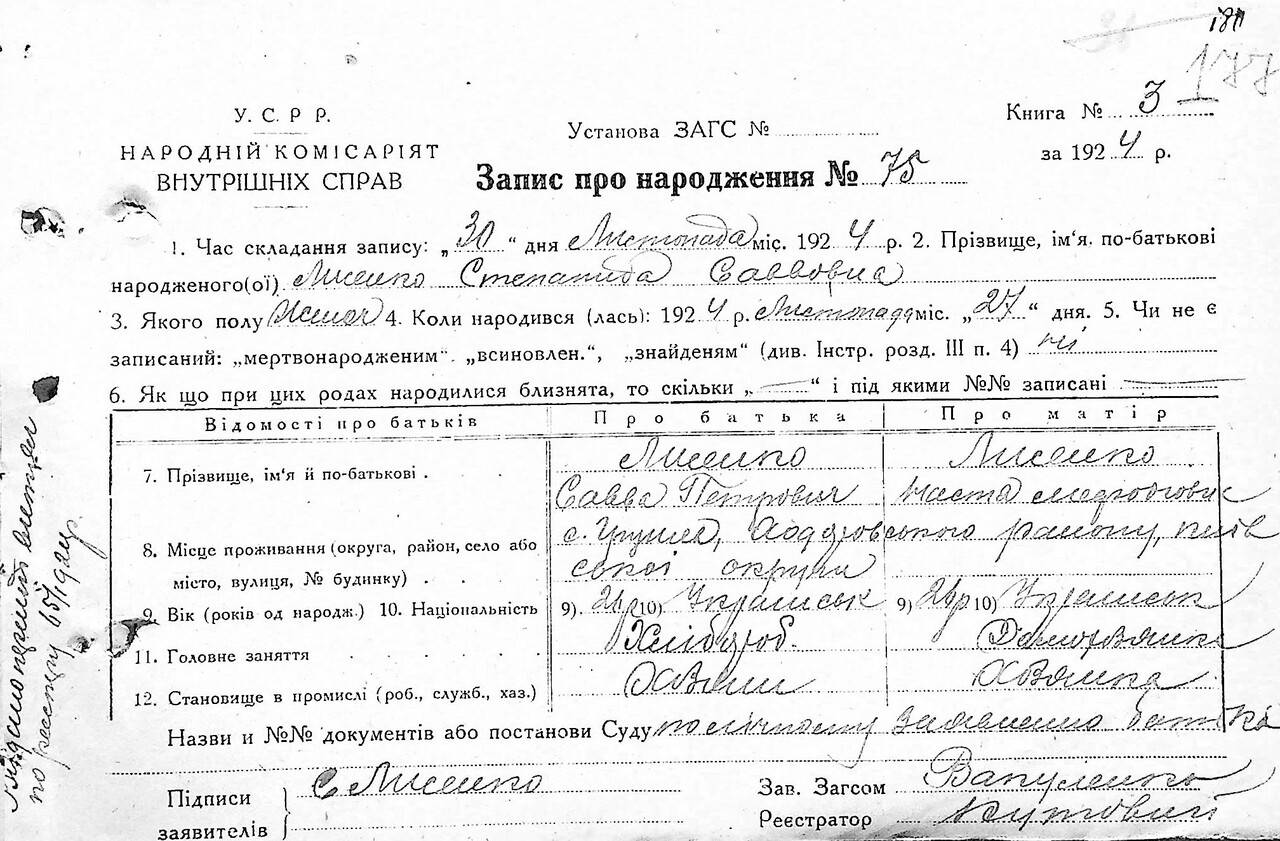 181
31
177
У. С. Р Р.
НАРОДНІЙ КОМІСАРІЯТ
ВНУТРІШНІХ СПРАВ
Установа ЗАГС №
Книга № 3
за 1924 р.
Запис про народження № 75
1. Час складання запису: „30“ дня Листопада міс. 1924 р. 2. Прізвище, ім'я. по-батькові
народженого(ої) Лисенко Степанида Саввовна
3. Якого полу Жіноч 4. Коли народився (лась): 1924 р. Листопада міс. „27“ дня. 5. Чи не є
записаний: „мертвонародженим“. „всиновлен.“, „знайденям“ (див. Інстр. розд. III п. 4) ні
6. Як що при цих родах народилися близнята, то скільки „—“ і під якими №№ записані
Відомості про батьків Про батька Про матір
7. Прізвище, ім'я й по-батькові . Лисенко Лисенко
Савва Петрович Наста
8. Місце проживання (округа, район, село або с. району, Київ
місто, вулиця, № будинку) . . ської округи
9. Вік (років од народж.) 10. Національність 9). 21р 10) Українськ 9) 10) Українськ
11. Головне заняття . . . . Хлібороб.
12. Становище в промислі (роб., служб., хаз.)
Назви и №№ документів або постанови Суду по заявлению батька
Підписи С Лисенко Зав. Загсом Вакуленко
заявителів Реєстратор